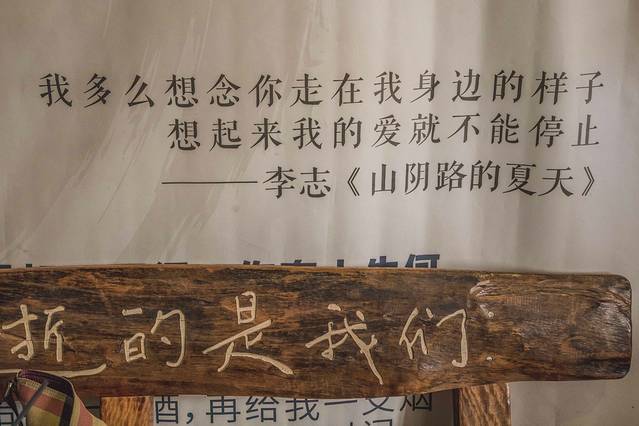 我多么想念你走在我身边的样子
想起来我的爱就不能停止
——李志《山阴路的夏天》
逝的是我们
酒,再给我一支烟